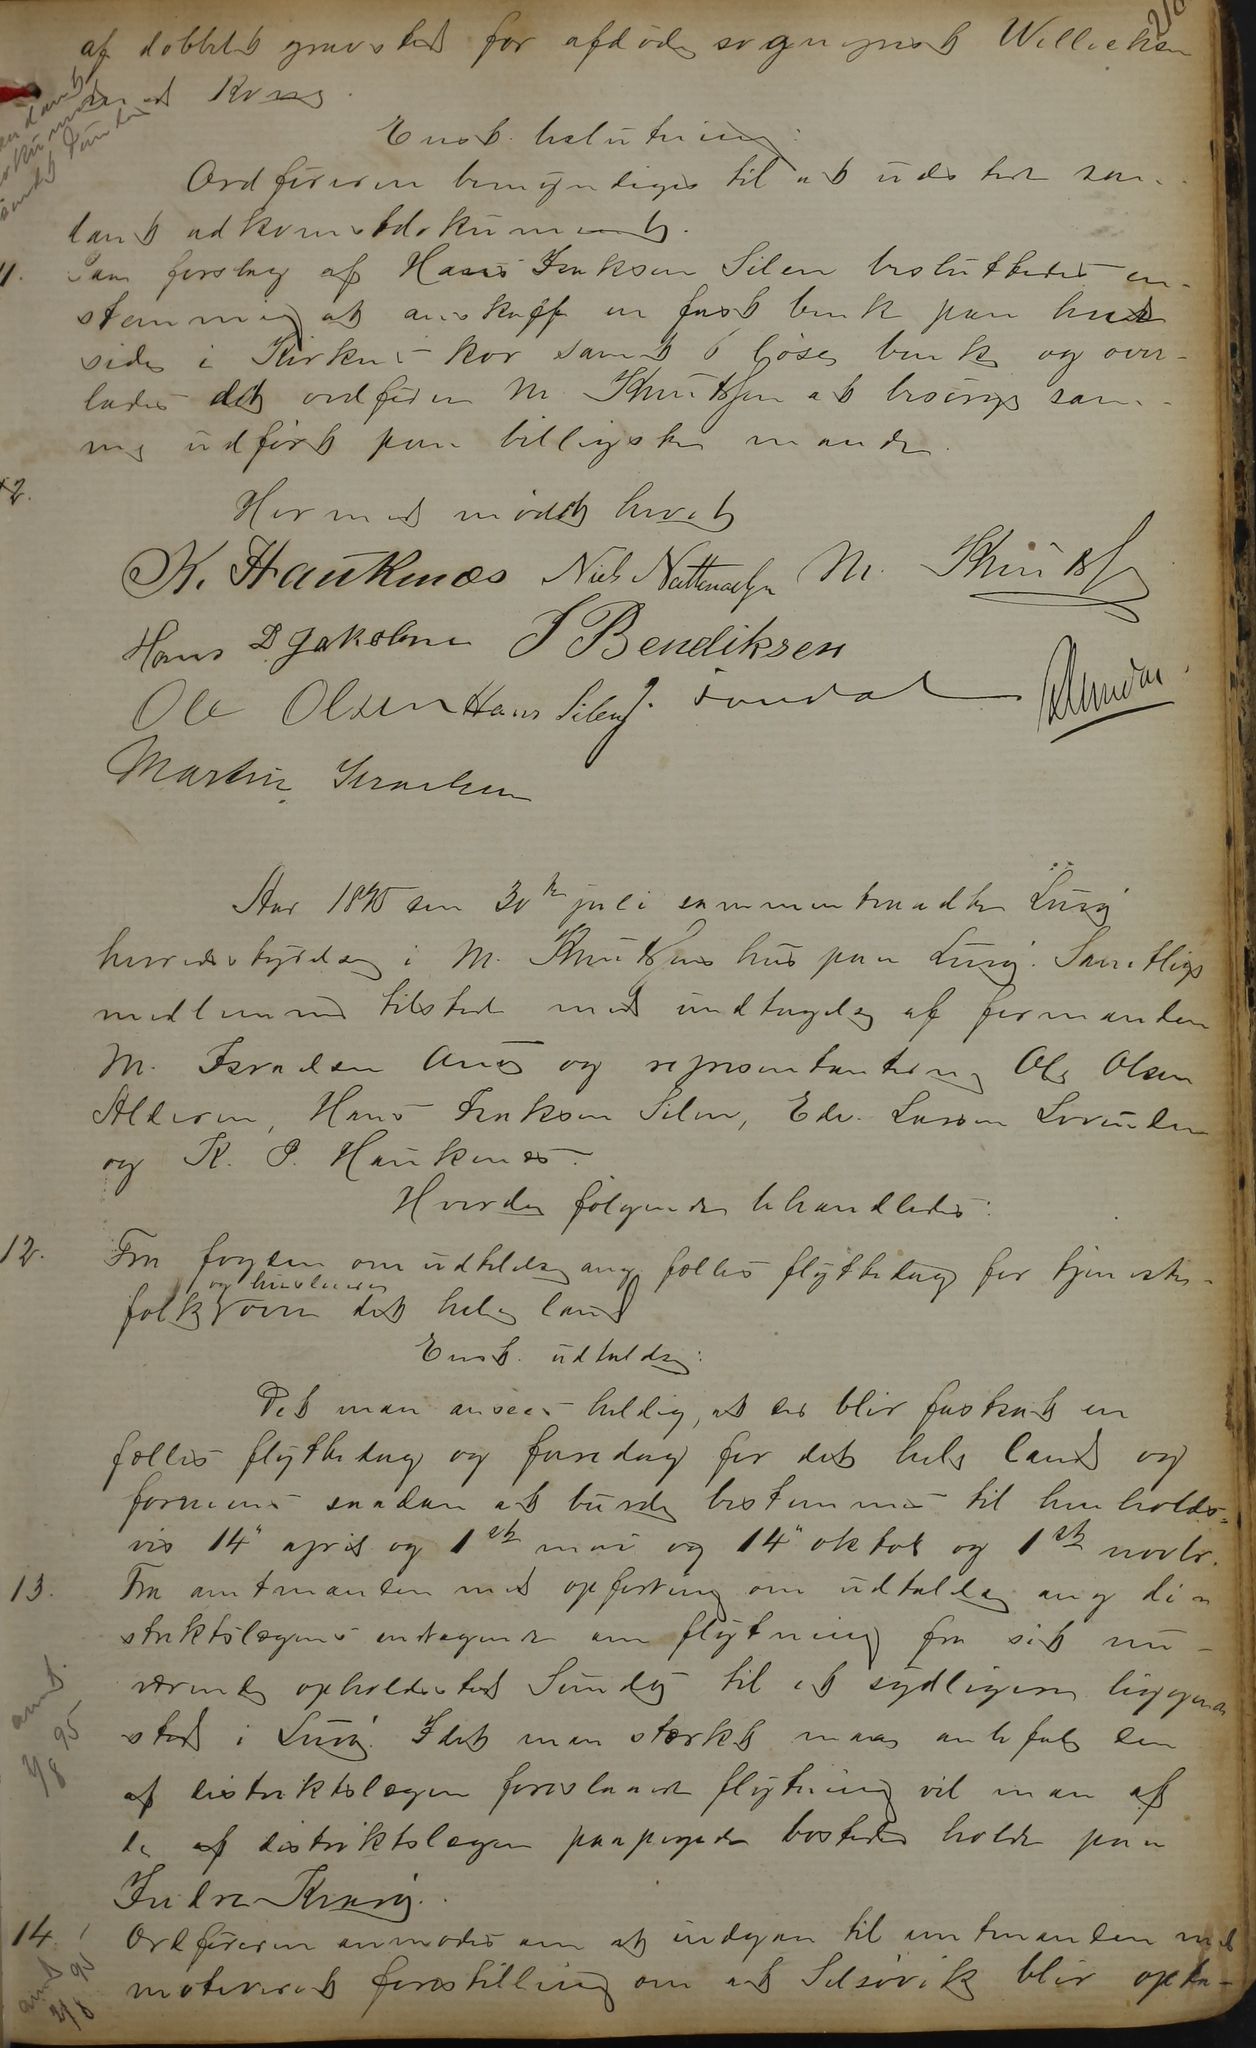 af dobbelt gravsted for afdøde sogneprest Willicksen
Enst. beslutning:
Ordføreren bemyndiges til at udstede saa-
dant adkomstdokument.
11. Paa forslag af Hans Isaksen Silen besluttedes en-
stemmig at anskaffe en fast benk paa hver
side i Kirkens kor samt 6 løse benke og over-
lades det ordfører M. Knutsen at besørge sam-
me udført paa billigste maade.
Hermed mødet hævet
K. Haukenæs Niels Nattenaelsen M. Knutsen
Hans D Jakobsen P Bendiksen
Ole Olsen Hans Silen J. Tondal
Martin Israelsen
Aar 1895 den 30te juli sammentraadte Lurø
herredsstyrelse i M. Knutsens hus paa Lurø. Samtlige
medlemmer tilstede med undtagelse af formanden
M. Israelsen og representanterne Ole Olsen
Alderen, Hans Isaksen Silen, Edv. Larsen Lovunden
og K. P. Haukenæs.
Hvorda følgende behandledes:
12. Fra fogden om udtalelse ang. fælles flyttedag for tjeneste-
og husleiere
folk over det hele land
Enst. udtalelse:
Det man ansees heldig, at der blir fastsat en
fælles flyttedag og faredag for det hele land og
formenes saadan at burde bestemmes til henholds-
vis 14" april og 1ste mai og 14" oktob og 1ste novbr.
13. Fra amtmanden med opfordring om udtalelse ang di-
striktslægens andragende om flytning fra sit nu-
værende opholdssted Sundøy til et sydligere liggende
sted i Lurø. Idet man stærkt maa anbefale den
af distriktslægen foreslaaede flytning vil man af
de af distriktslægen paapegede bosteder holde paa
Indre Kvarø.
amt. 2/8 95
14. Ordføreren anmodes om at indgaa til amtmanden med
motiveret forestilling om at Selsøvik blir opta-
amt 2/8 95